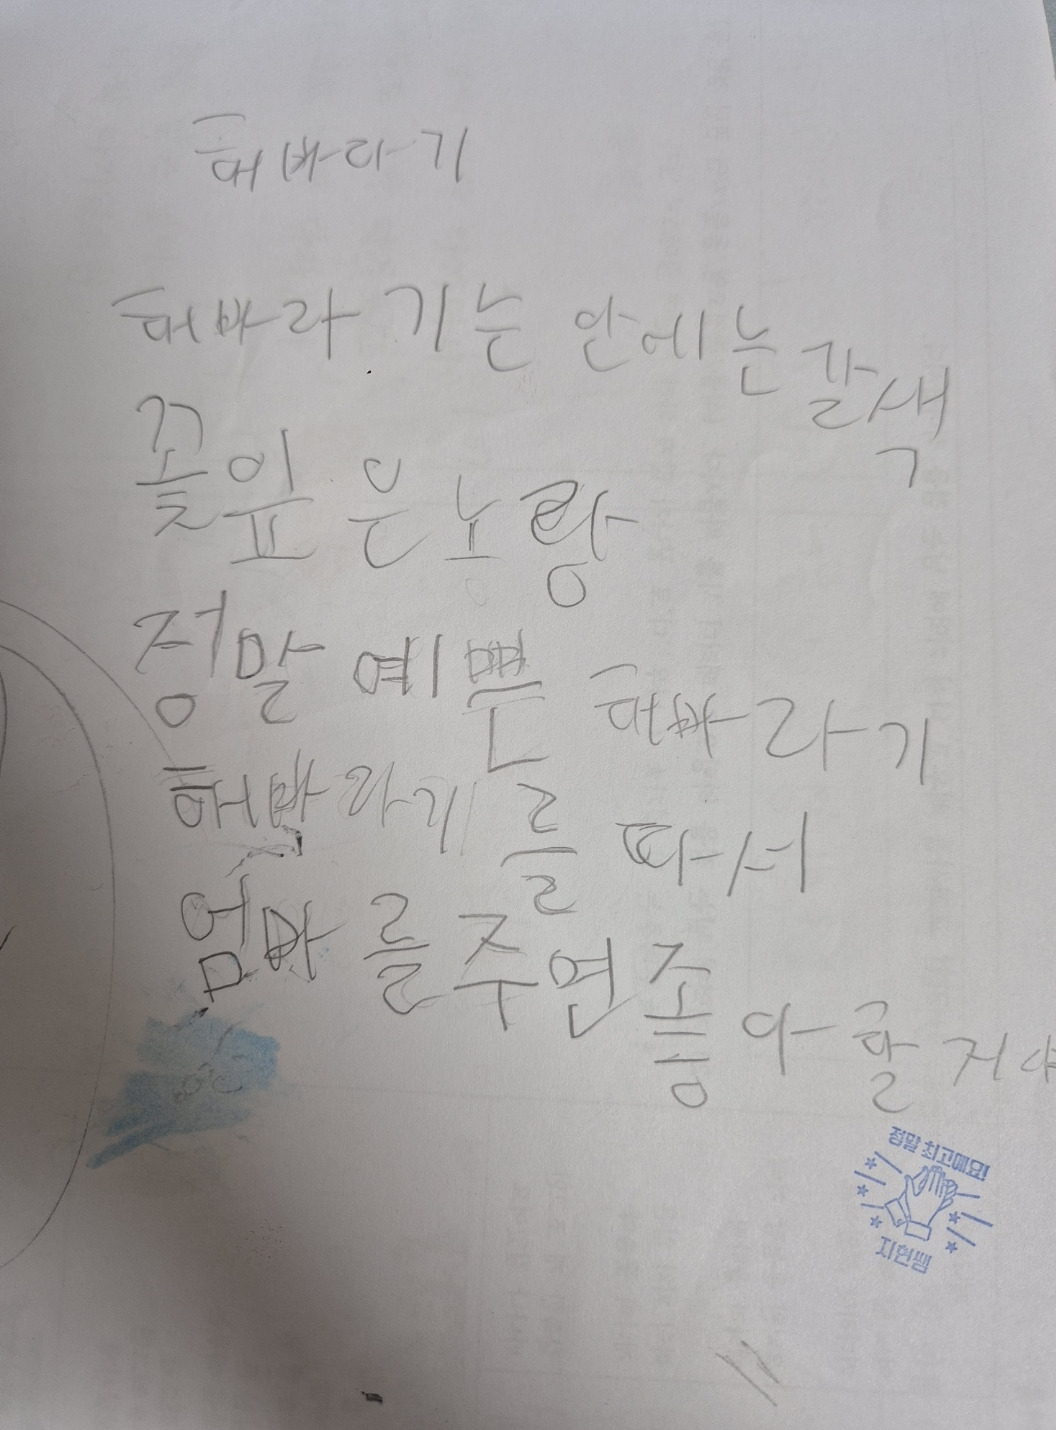 해바라기
해바라기는 안에는 갈색
꽃잎은 노랑
정말 예쁜 해바라기
해바라기를 따서
엄마를 주면 좋아 할 거야
정말 최고예요!
지현쌤